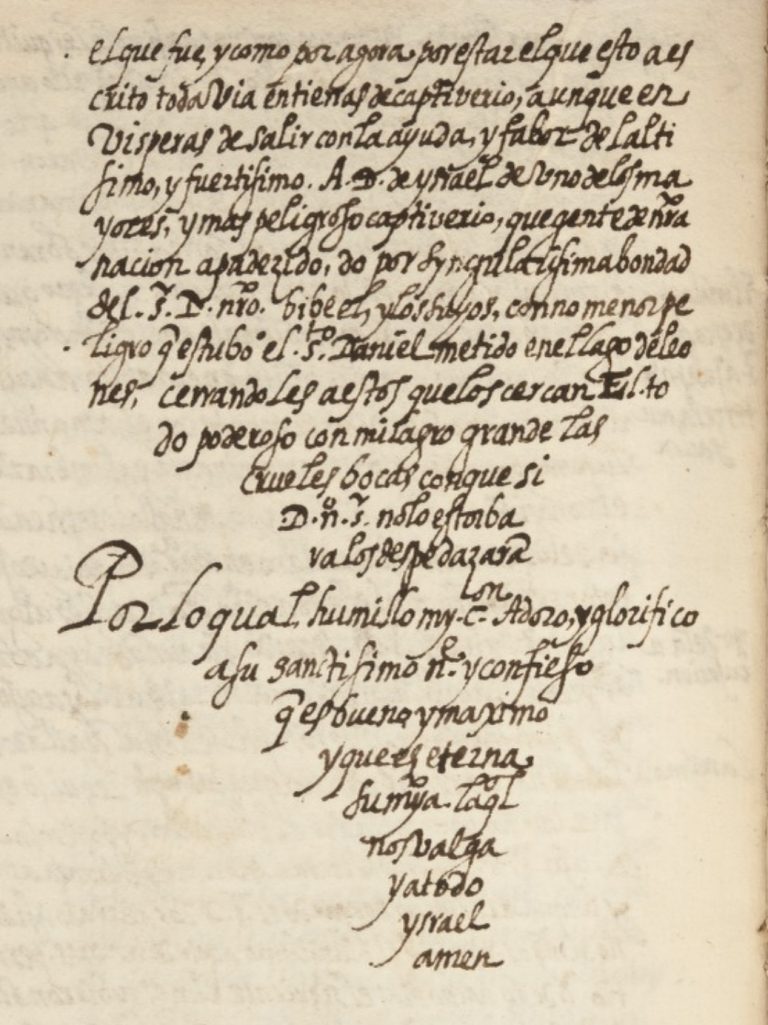 el que fue, y como por agora por estar el que esto a es
crito toda Via en tierras de captiverio, aunque en
Visperas de salir con la ayuda, y fabor de l alti
simo, y fuertisimo. A. D. de ysrael de Uno de los ma
yores, y mas peligroso captiverio, que gente de nrã
nacion a padezido, do por syngularisima bondad
del. S. D. nrõ. bibe el, y los suyos, con no menor pe
ligro q̃ estubo el. Sto. Daniel metido en el lago de leo
nes, cerrandoles a estos que los cercan El. to
do poderoso con milagro grande las
crueles bocas con que si
D. nº. S. no lo estorba
ra los despedazarã
Por lo qual humillo my. Con. Adoro, y glorifico
a su sanctisimo ne. y confieso
q̃ es bueno y maximo
y que es eterna
su mya. la ql
nos valga
y a todo
ysrael
amen